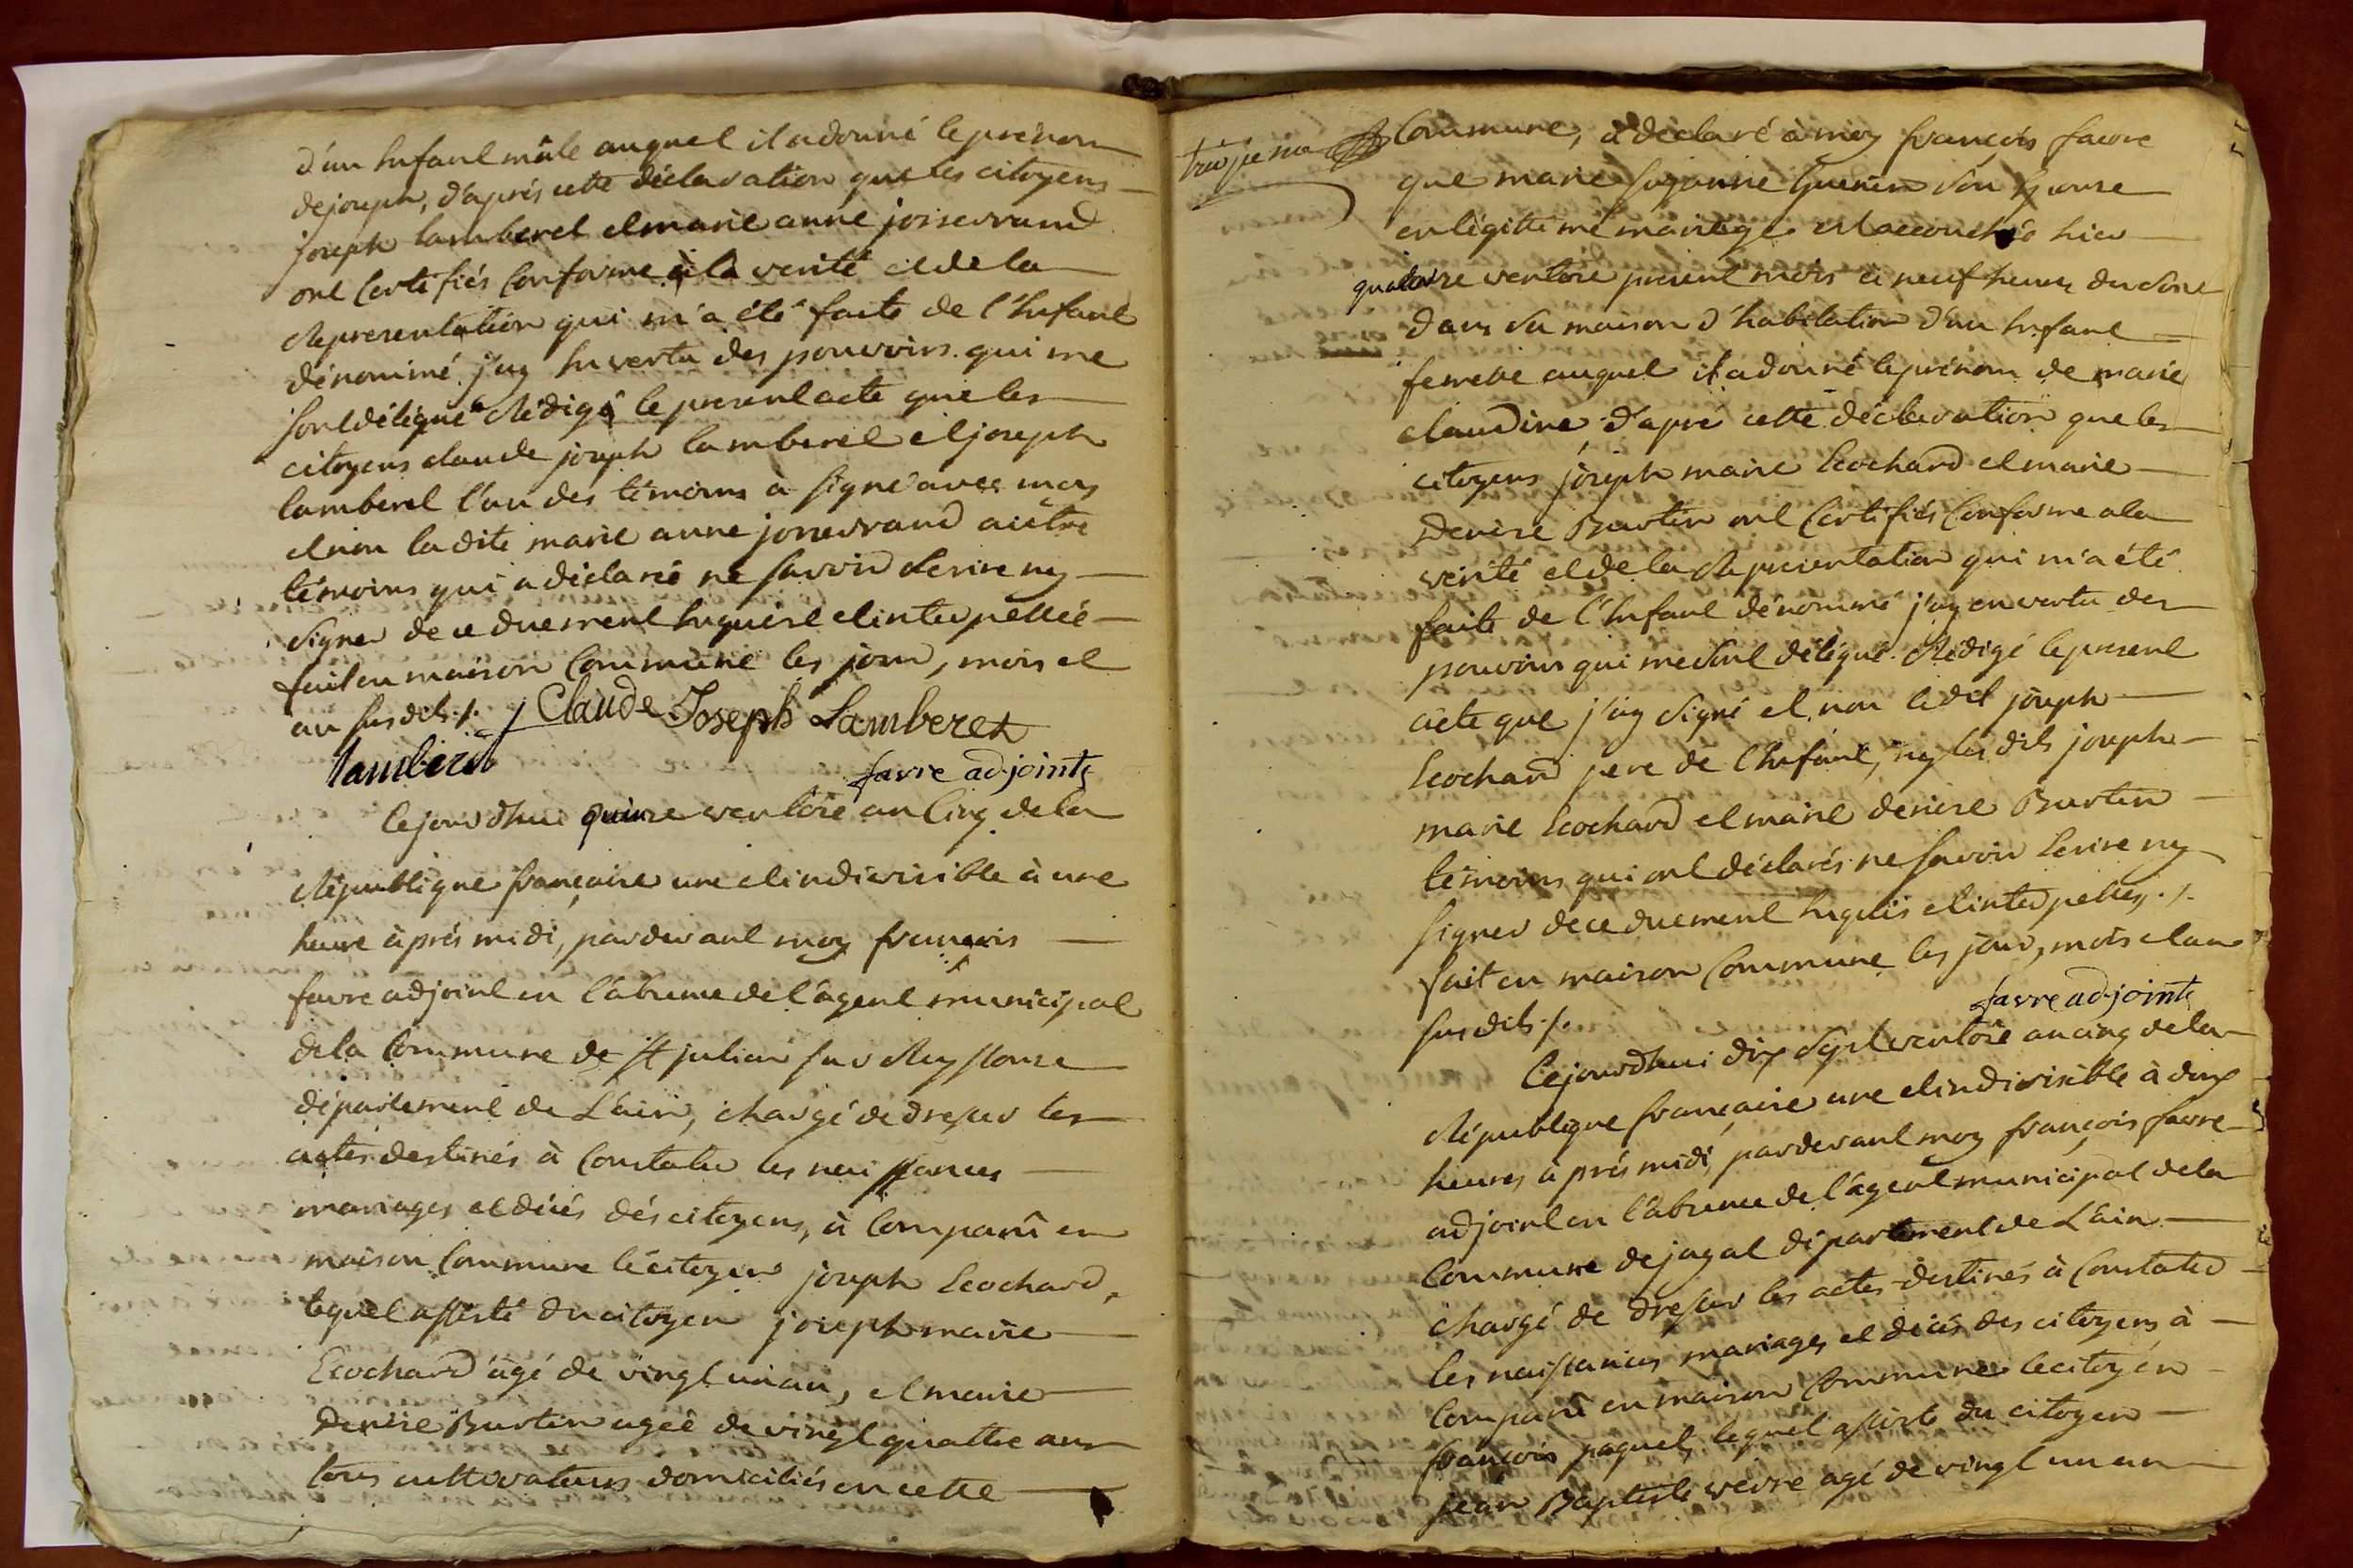 d'un Enfant mâle auquel il a donné le prénom
de joseph, d'aprés cette déclaration que les citoyens
joseph lamberet et marie anne josserrand
ont Certifiés Conforme à la verité et de la
Representation qui m'a été faite de l'Enfant
dénommé j'ay En vertu des pouvoirs qui me
sont délégué Rédigé le present acte que les
citoyens claude joseph lamberet et joseph
lamberet l'un des témoins a signé avec moy
et non la dite marie anne josserrand autre
témoins qui a déclaré ne savoir Ecrire ny
signer de ce duement Enquise et interpellée
fait en maison Commune les jour, mois et
an susdits ./. Claude Joseph Lamberet
lamberet
favre adjoint
Cejourdhui quinze ventôse an Cinq de la
République française une et indivisible à une
heure àprés midi, pardevant moy françois
favre adjoint en l'absence de l'agent municipal
de la Commune de St julien sur Reyssouze
département de L'ain, chargé de dresser les
actes destinés à Constater les naissances
mariages et décés des citoyens, à Comparû en
maison Commune le citoyen joseph Ecochard,
lequel assisté du citoyen joseph marie
Ecochard âgé de vingt un an, et marie
denise Burtin agée de vingt quattre ans
tous cultivateurs domiciliés en cette
Commune, à déclaré à moy françois favre
que marie suzanne Guerin son Epouse
en légittime mariage est accouchée hier
quatorze ventose present mois à neuf heures du soire
dans sa maison d'habitation d'un Enfant
femelle auquel il a donné le prénom de marie
claudine, d'apré cette déclaration que les
citoyens joseph marie Ecochard et marie
denise Burtin ont Certifiés Conforme a la
verité et de la Representation qui m'a été
faite de l'Enfant dénommé j'ay en vertu des
pouvoirs qui me sont délégué Rédigé le present
acte que j'ay signé et non ledit joseph
Ecochard pere de l'Enfant, ny les dits joseph
marie Ecochard et marie denise Burtin
témoins qui ont déclarés ne savoir Ecrire ny
signer de ce duement Enquis et interpellés ./.
fait en maison Commune les jour, mois et an
susdits ./.
favre adjoint
Cejourdhui dix sept ventose an cinq de la
République française une et indivisible à deux
heures àprés midi, pardevant moy françois favre
adjoint en l'absence de l'agent municipal de la
Commune de jayat département de L'ain
chargé de dresser les actes destinés à Constater
les naissances mariages et décés des citoyens à
Comparû en maison Commune le citoyen
françois paquet, lequel assisté du citoyen
jean Baptiste vevre agé de vingt un an